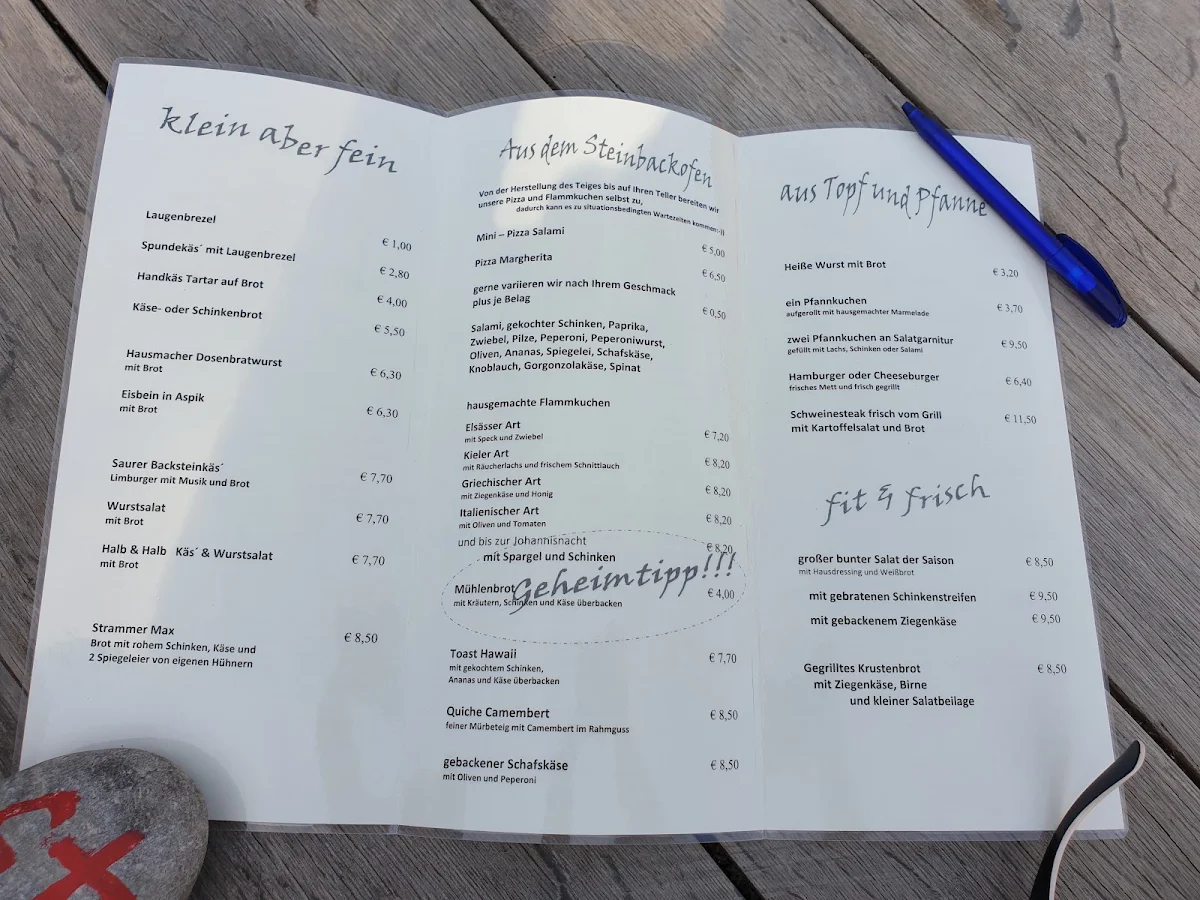 klein aber fein
Laugenbrezel
€ 1,00
Spundekäs´ mit Laugenbrezel
€ 2,80
Handkäs Tartar auf Brot
€ 4,00
Käse- oder Schinkenbrot
€ 5,50
Hausmacher Dosenbratwurst
mit Brot
€ 6,30
Eisbein in Aspik
mit Brot
€ 6,30
Saurer Backsteinkäs´
Limburger mit Musik und Brot
€ 7,70
Wurstsalat
mit Brot
€ 7,70
Halb & Halb Käs´ & Wurstsalat
mit Brot
€ 7,70
Strammer Max
Brot mit rohem Schinken, Käse und
2 Spiegeleier von eigenen Hühnern
€ 8,50
Aus dem Steinbackofen
Von der Herstellung des Teiges bis auf Ihren Teller bereiten wir
unsere Pizza und Flammkuchen selbst zu,
dadurch kann es zu situationsbedingten Wartezeiten kommen:-))
Mini – Pizza Salami
€ 5,00
Pizza Margherita
€ 6,50
gerne variieren wir nach Ihrem Geschmack
plus je Belag
€ 0,50
Salami, gekochter Schinken, Paprika,
Zwiebel, Pilze, Peperoni, Peperoniwurst,
Oliven, Ananas, Spiegelei, Schafskäse,
Knoblauch, Gorgonzolakäse, Spinat
hausgemachte Flammkuchen
Elsässer Art
mit Speck und Zwiebel
€ 7,20
Kieler Art
mit Räucherlachs und frischem Schnittlauch
€ 8,20
Griechischer Art
mit Ziegenkäse und Honig
€ 8,20
Italienischer Art
mit Oliven und Tomaten
€ 8,20
und bis zur Johannisnacht
mit Spargel und Schinken
€ 8,20
Geheimtipp!!!
Mühlenbrot
mit Kräutern, Schinken und Käse überbacken
€ 4,00
Toast Hawaii
mit gekochtem Schinken,
Ananas und Käse überbacken
€ 7,70
Quiche Camembert
feiner Mürbeteig mit Camembert im Rahmguss
€ 8,50
gebackener Schafskäse
mit Oliven und Peperoni
€ 8,50
aus Topf und Pfanne
Heiße Wurst mit Brot
€ 3,20
ein Pfannkuchen
aufgerollt mit hausgemachter Marmelade
€ 3,70
zwei Pfannkuchen an Salatgarnitur
gefüllt mit Lachs, Schinken oder Salami
€ 9,50
Hamburger oder Cheeseburger
frisches Mett und frisch gegrillt
€ 6,40
Schweinesteak frisch vom Grill
mit Kartoffelsalat und Brot
€ 11,50
fit & frisch
großer bunter Salat der Saison
mit Hausdressing und Weißbrot
€ 8,50
mit gebratenen Schinkenstreifen
€ 9,50
mit gebackenem Ziegenkäse
€ 9,50
Gegrilltes Krustenbrot
mit Ziegenkäse, Birne
und kleiner Salatbeilage
€ 8,50